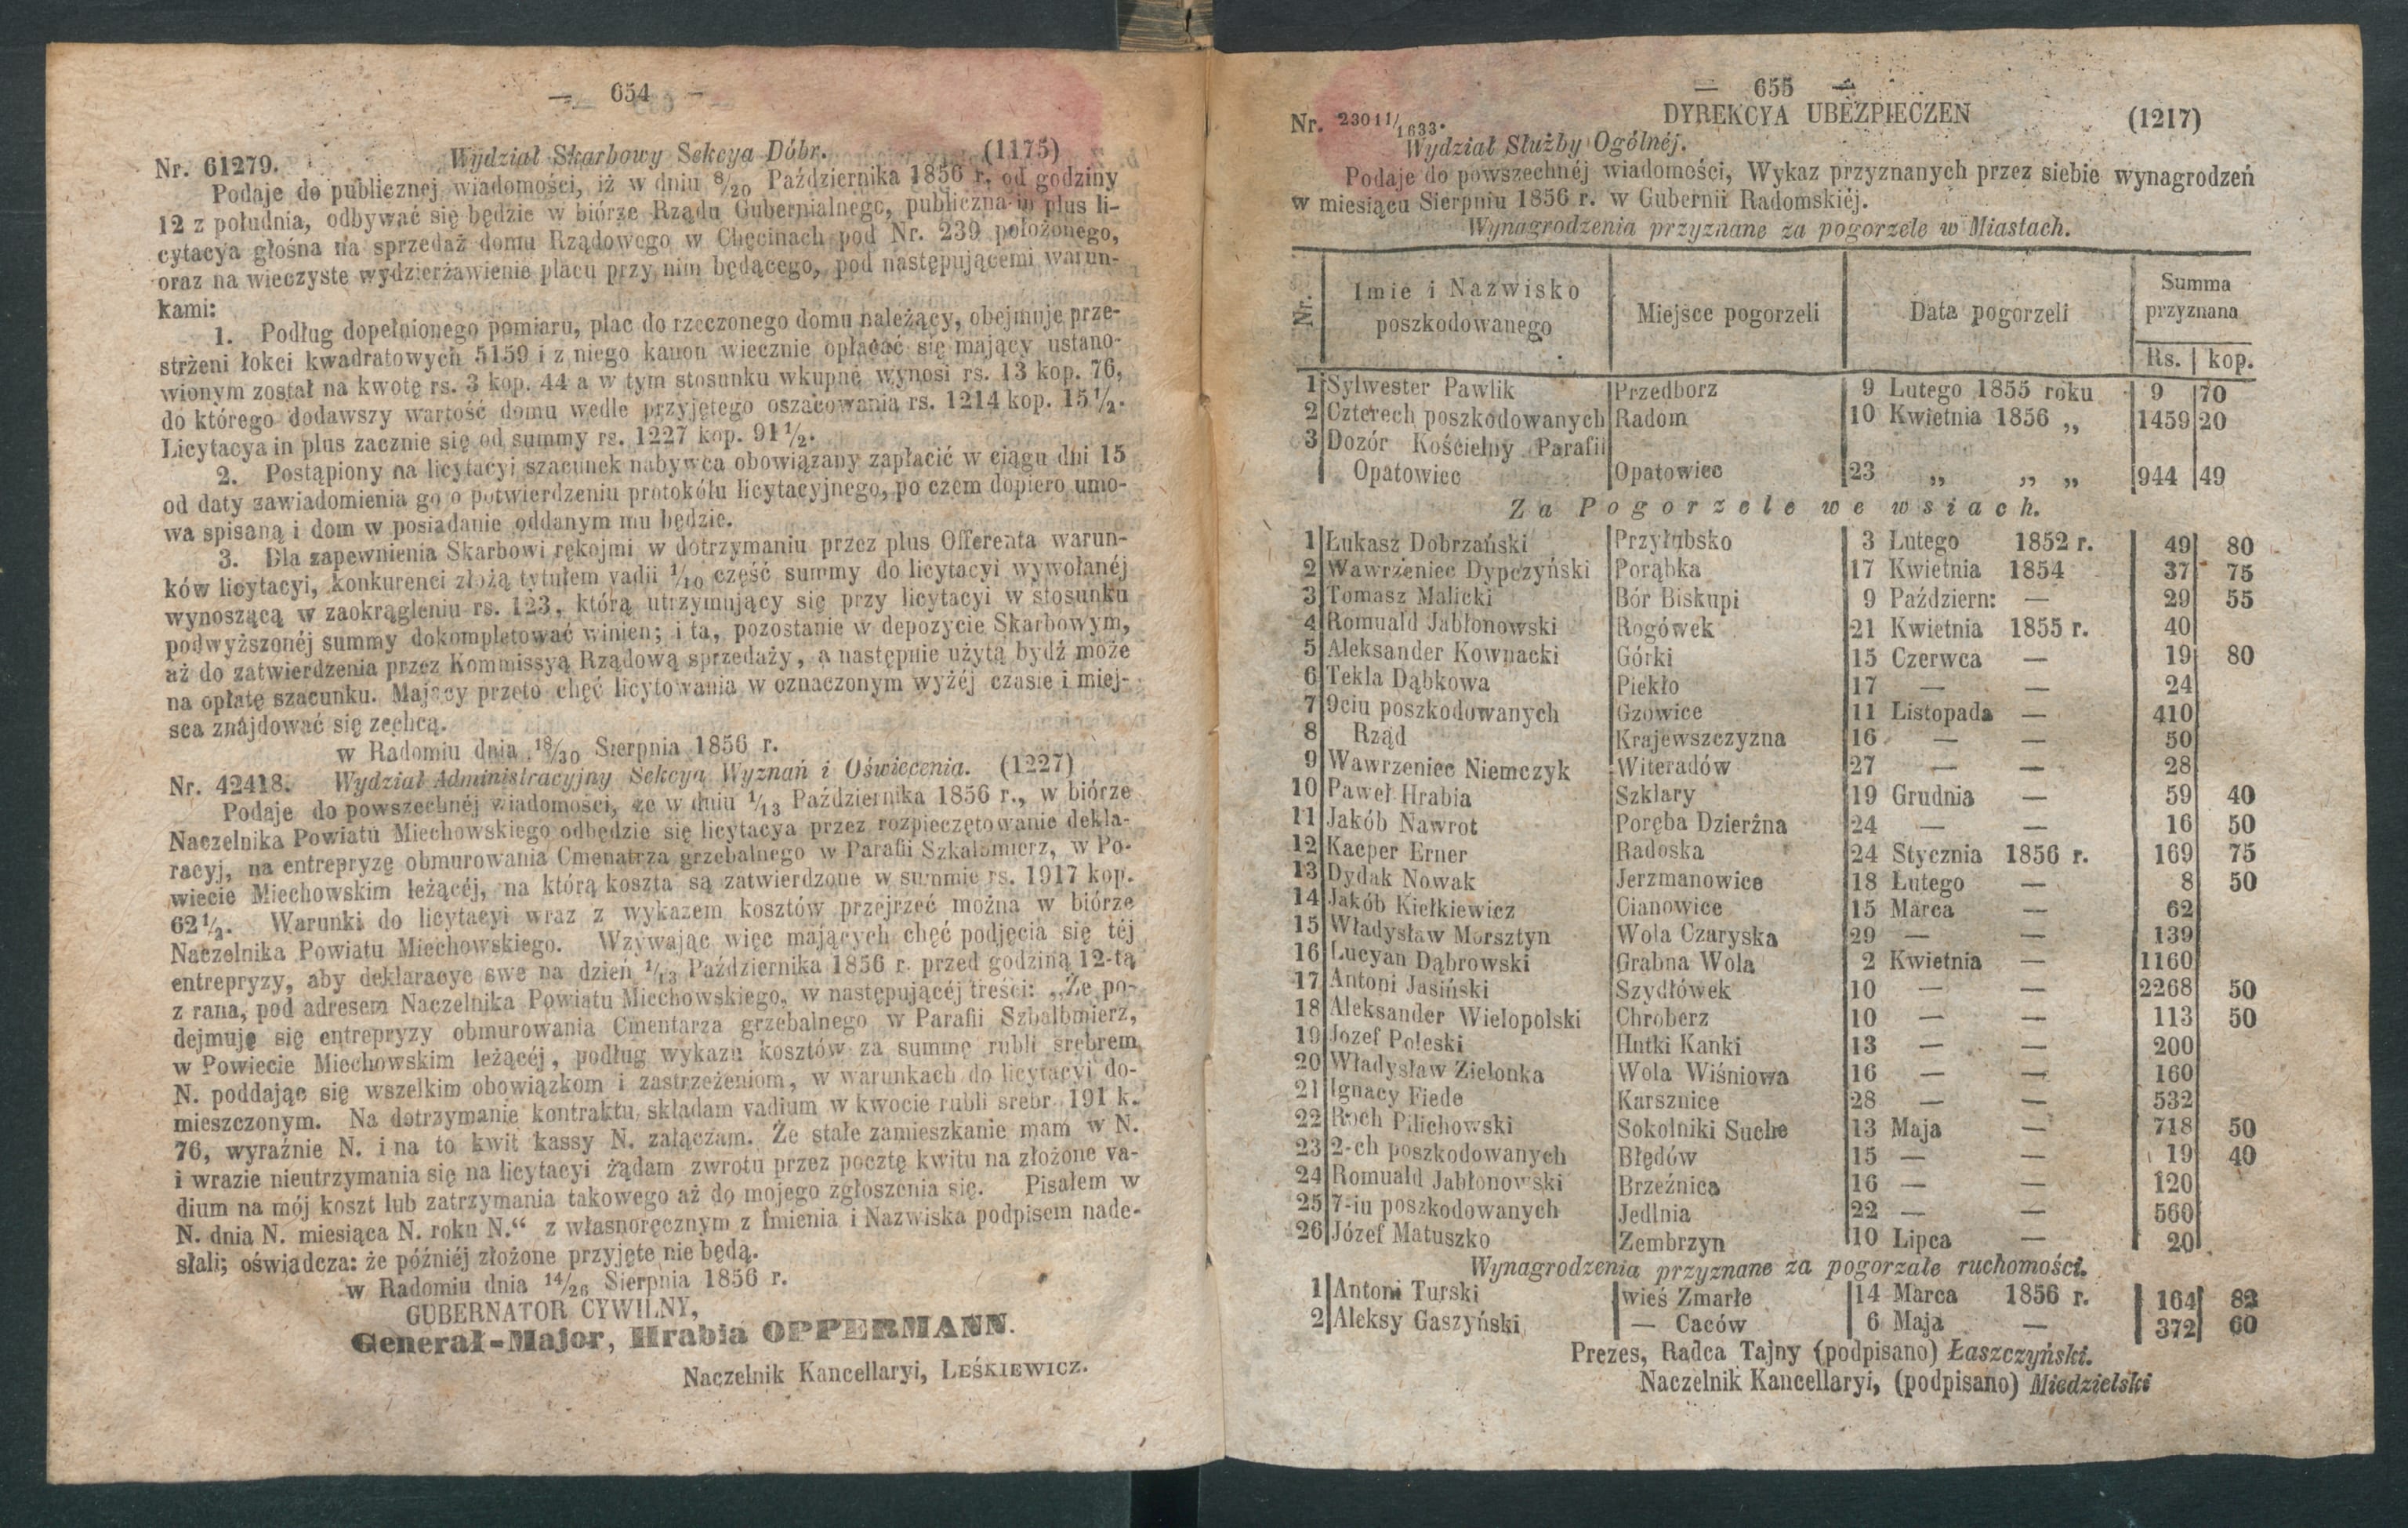 — 654 —
Nr. 61279. Wydział Skarbowy Sekcya Dóbr. (1175)
Podaje do publicznej wiadomości, iż w dniu 8/20 Października 1856 r. od godziny
12 z południa, odbywać się będzie w biórze Rządu Gubernialnego, publiczna in plus li-
cytacya głośna na sprzedaż domu Rządowego w Chęcinach pod Nr. 239 położonego,
oraz na wieczyste wydzierżawienie placu przy nim będącego, pod następującemi warun-
kami:
1. Podług dopełnionego pomiaru, plac do rzeczonego domu należący, obejmuje prze-
strzeni łokci kwadratowych 5159 i z niego kanon wiecznie opłacać się mający ustano-
wionym został na kwotę rs. 3 kop. 44 a w tym stosunku wkupne wynosi rs. 13 kop. 76,
do którego dodawszy wartość domu wedle przyjętego oszacowania rs. 1214 kop. 15 1/2.
Licytacya in plus zacznie się od summy rs. 1227 kop. 91 1/2.
2. Postąpiony na licytacyi szacunek nabywca obowiązany zapłacić w ciągu dni 15
od daty zawiadomienia go o potwierdzeniu protokółu licytacyjnego, po czem dopiero umo-
wa spisaną i dom w posiadanie oddanym mu będzie.
3. Dla zapewnienia Skarbowi rękojmi w dotrzymaniu przez plus Offerenta warun-
ków licytacyi, konkurenci złożą tytułem vadii 1/10 część summy do licytacyi wywołanéj
wynoszącą w zaokrągleniu rs. 123, którą utrzymujący się przy licytacyi w stosunku
podwyższonéj summy dokompletować winien; i ta, pozostanie w depozycie Skarbowym,
aż do zatwierdzenia przez Kommissyą Rządową sprzedaży, a następnie użytą bydź może
na opłatę szacunku. Mający przeto chęć licytowania w oznaczonym wyżéj czasie i miej-
scu znajdować się zechcą.
w Radomiu dnia 18/30 Sierpnia 1856 r.
Nr. 42418. Wydział Administracyjny Sekcya Wyznań i Oświecenia. (1227)
Podaje do powszechnéj wiadomości, że w dniu 1/13 Października 1856 r., w biórze
Naczelnika Powiatu Miechowskiego odbędzie się licytacya przez rozpieczętowanie dekla-
racyj, na entrepryzę obmurowania Cmentarza grzebalnego w Parafii Szkalbmierz, w Po-
wiecie Miechowskim leżącéj, na którą koszta są zatwierdzone w summie rs. 1917 kop.
62 1/2. Warunki do licytacyi wraz z wykazem kosztów przejrzeć można w biórze
Naczelnika Powiatu Miechowskiego. Wzywając więc mających chęć podjęcia się téj
entrepryzy, aby deklaracye swe na dzień 1/13 Października 1856 r. przed godziną 12-tą
z rana, pod adresem Naczelnika Powiatu Miechowskiego, w następującéj treści: „Że po-
dejmuję się entrepryzy obmurowania Cmentarza grzebalnego w Parafii Szbalbmierz,
w Powiecie Miechowskim leżącéj, podług wykazu kosztów za summę rubli srebrem
N. poddając się wszelkim obowiązkom i zastrzeżeniom, w warunkach do licytacyi do-
mieszczonym. Na dotrzymanie kontraktu składam vadium w kwocie rubli srebr. 191 k.
76, wyraźnie N. i na to kwit kassy N. załączam. Że stałe zamieszkanie mam w N.
i wrazie nieutrzymania się na licytacyi żądam zwrotu przez pocztę kwitu na złożone va-
dium na mój koszt lub zatrzymania takowego aż do mojego zgłoszenia się. Pisałem w
N. dnia N. miesiąca N. roku N.“ z własnoręcznym z Imienia i Nazwiska podpisem nade-
słali; oświadcza: że późniéj złożone przyjęte nie będą.
w Radomiu dnia 14/26 Sierpnia 1856 r.
GUBERNATOR CYWILNY,
Generał-Major, Hrabia OPPERMANN.
Naczelnik Kancellaryi, LEŚKIEWICZ.
— 655 —
Nr. 23011/1633. DYREKCYA UBEZPIECZEN (1217)
Wydział Służby Ogólnéj.
Podaje do powszechnéj wiadomości, Wykaz przyznanych przez siebie wynagrodzeń
w miesiącu Sierpniu 1856 r. w Gubernii Radomskiéj.
Wynagrodzenia przyznane za pogorzele w Miastach.
Nr. Imie i Nazwisko poszkodowanego Miejsce pogorzeli Data pogorzeli Summa przyznana
Rs. kop.
1 Sylwester Pawlik Przedborz 9 Lutego 1855 roku 9 70
2 Czterech poszkodowanych Radom 10 Kwietnia 1856 „ 1459 20
3 Dozór Kościelny Parafii
Opatowiec Opatowiec 23 „ „ „ 944 49
Za Pogorzele we wsiach.
1 Łukasz Dobrzański Przyłubsko 3 Lutego 1852 r. 49 80
2 Wawrzeniec Dypczyński Porąbka 17 Kwietnia 1854 37 75
3 Tomasz Malicki Bór Biskupi 9 Październ: — 29 55
4 Romuald Jabłonowski Rogówek 21 Kwietnia 1855 r. 40
5 Aleksander Kownacki Górki 15 Czerwca — 19 80
6 Tekla Dąbkowa Piekło 17 — — 24
7 9ciu poszkodowanych Gzowice 11 Listopada — 410
8 Rząd Krajewszczyzna 16 — — 50
9 Wawrzeniec Niemczyk Witeradów 27 — — 28
10 Paweł Hrabia Szklary 19 Grudnia — 59 40
11 Jakób Nawrot Poręba Dzierżna 24 — — 16 50
12 Kacper Erner Radoska 24 Stycznia 1856 r. 169 75
13 Dydak Nowak Jerzmanowice 18 Lutego — 8 50
14 Jakób Kiełkiewicz Cianowice 15 Marca — 62
15 Władysław Morsztyn Wola Czaryska 29 — — 139
16 Lucyan Dąbrowski Grabna Wola 2 Kwietnia — 1160
17 Antoni Jasiński Szydłówek 10 — — 2268 50
18 Aleksander Wielopolski Chroberz 10 — — 113 50
19 Józef Poleski Hutki Kanki 13 — — 200
20 Władysław Zielonka Wola Wiśniowa 16 — — 160
21 Ignacy Fiede Karsznice 28 — — 532
22 Roch Pilichowski Sokolniki Suche 13 Maja — 718 50
23 2-ch poszkodowanych Błędów 15 — — 19 40
24 Romuald Jabłonowski Brzeźnica 16 — — 120
25 7-iu poszkodowanych Jedlnia 22 — — 560
26 Józef Matuszko Zembrzyn 10 Lipca — 20
Wynagrodzenia przyznane za pogorzałe ruchomości.
1 Antoni Turski wieś Zmarłe 14 Marca 1856 r. 164 82
2 Aleksy Gaszyński — Caców 6 Maja — 372 60
Prezes, Radca Tajny (podpisano) Łaszczyński.
Naczelnik Kancellaryi, (podpisano) Miedzielski